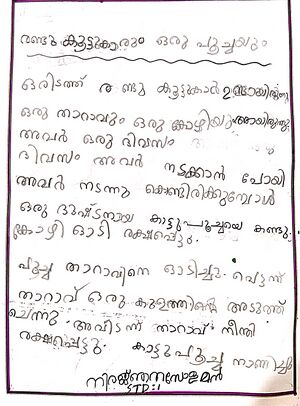 രണ്ടു കൂട്ടുകാരും ഒരു പൂച്ചയും
ഒരിടത്ത് രണ്ടു കൂട്ടുകാർ ഉണ്ടായിരുന്നു
ഒരു താറാവും ഒരു കോഴിയു
അവർ ഒരു ദിവസം
ദിവസം അവർ നടക്കാൻ പോയി
അവർ നടന്നു കൊണ്ടിരിക്കുമ്പോൾ
ഒരു ദുഷ്ടനായ കാട്ടുപൂച്ചയെ കണ്ടു.
കോഴി ഓടി രക്ഷപ്പെട്ടു.
പൂച്ച താറാവിനെ ഓടിച്ചു. പെട്ടന്ന്
താറാവ് ഒരു കുളത്തിന്റെ അടുത്ത്
ചെന്നു. അവിടന്ന് താറാവ് നീന്തി
രക്ഷപ്പെട്ടു. കാട്ടുപൂച്ച നാണിച്ചു
STD:1